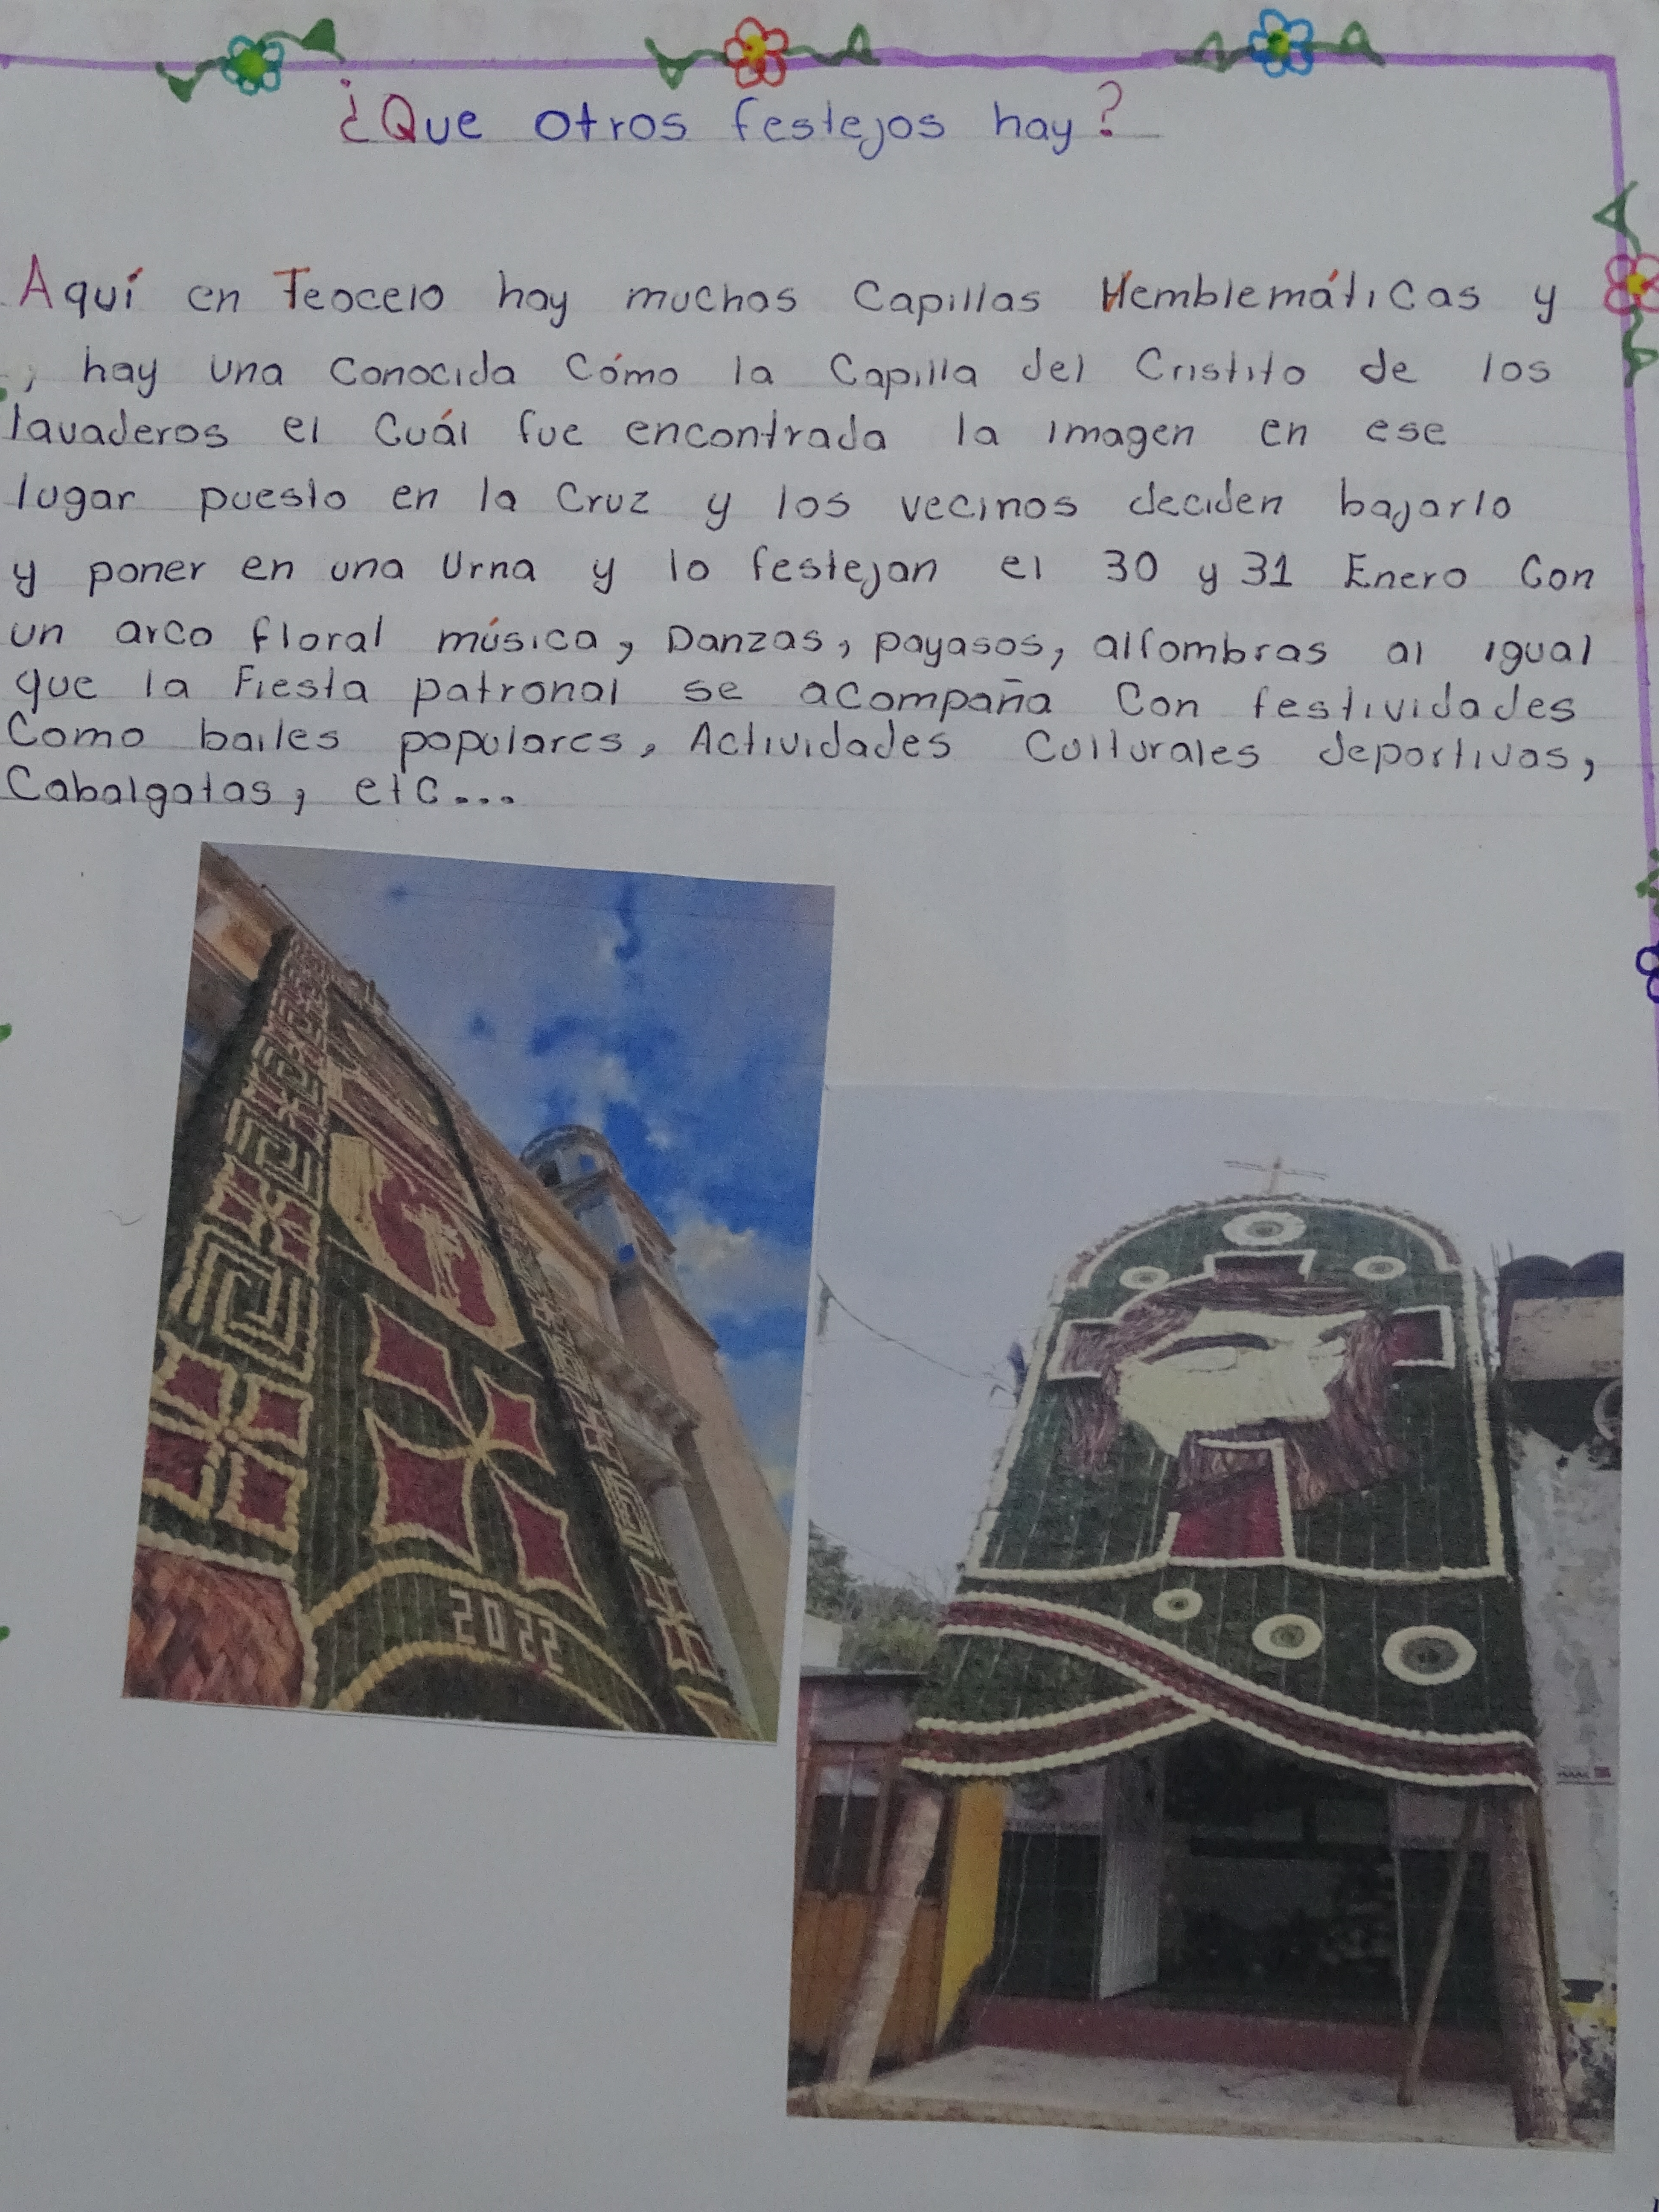 ¿Que otros festejos hay?
Aquí en Teocelo hay muchas Capillas Hemblemáticas y
, hay una Conocida Cómo la Capilla del Cristito de los
lavaderos el Cuál fue encontrada la imagen en ese
lugar puesto en la Cruz y los vecinos deciden bajarlo
y poner en una Urna y lo festejan el 30 y 31 Enero Con
un arco floral música, Danzas, payasos, alfombras al igual
que la Fiesta patronal se acompaña Con festividades
Como bailes populares, Actividades Culturales deportivas,
Cabalgatas, etc...
2022